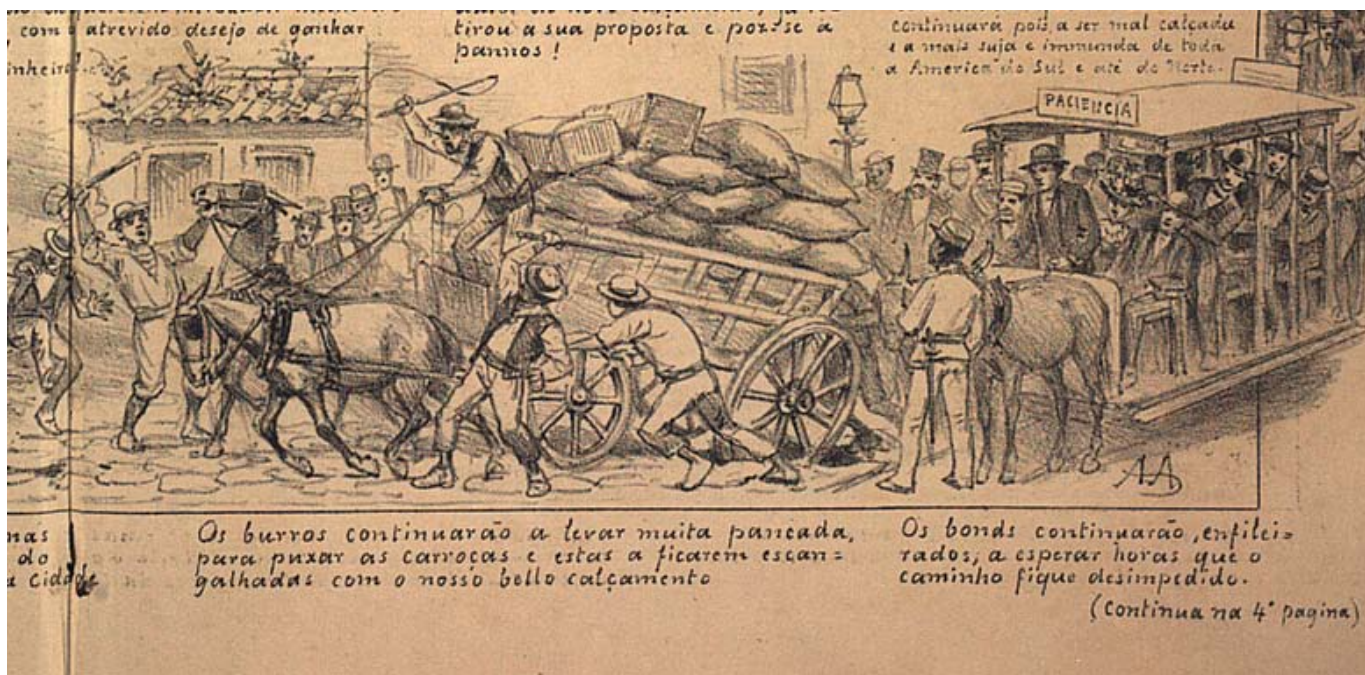 com o atrevido desejo de ganhar
tirou a sua proposta e poz=se à
pannos!
continuará pois, a ser mal calçada
e a mais suja e immunda de toda
a America do Sul e até do Norte.
PACIENCIA
AA
do
a Cidade
Os burros continuarão a levar muita pancada,
para puxar as carroças e estas a ficarem escan=
galhadas com o nosso bello calçamento
Os bonds continuarão, enfilei=
rados, a esperar horas que o
caminho fique desimpedido.
(Continua na 4ª pagina)